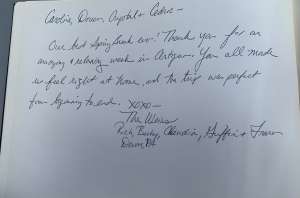 Caroline, Dawn, Crystal & Cedric –
Our best Spring Break ever! Thank you for an
amazing & relaxing week in Antigua. You all made
us feel right at home, and the trip was perfect
from beginning to end. XOXO –
The
Rich, Claudia, Griffin &